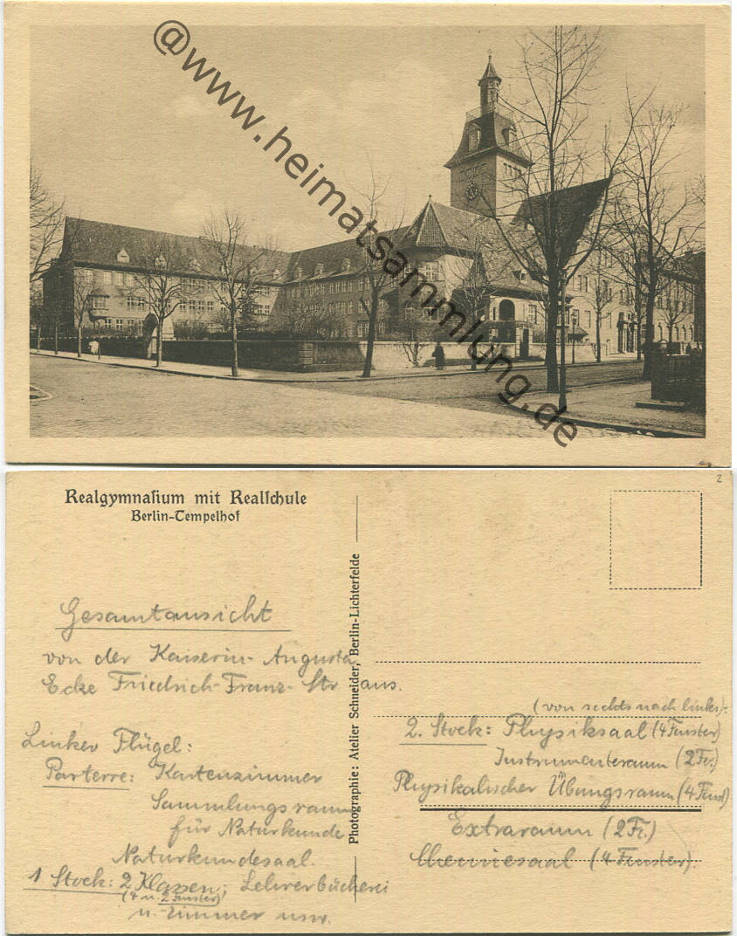 @www.heimatsammlung.de
2
Realgymnasium mit Realschule
Berlin-Tempelhof
Photographie: Atelier Schneider, Berlin-Lichterfelde
Gesamtansicht
von der Kaiserin-Augusta
Ecke Friedrich-Franz-Str aus.
Linker Flügel:
Parterre: Kartenzimmer
Sammlungsraum
für Naturkunde
Naturkundesaal.
1 Stock: 2 Klassen; Lehrerbücherei
(4 u. 2 Fenster)
u. -zimmer usw.
(von rechts nach links):
2. Stock: Physiksaal (4 Fenster)
Instrumentenraum (2 Fr.)
Physikalischer Übungsraum (4 Fenst)
Extraraum (2 Fr.)
Chemiesaal (4 Fenster).